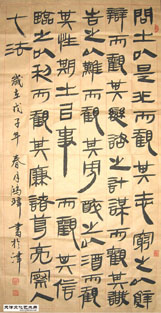 問之以是非而觀其志窮之以辭
辯而觀其變諮之以計謀而觀其識
告之以難而觀其勇醉之以酒而觀
其性期之以事而觀其信
臨之以利而觀其廉諸葛亮察人
七法 歲在戊子年春月書於津